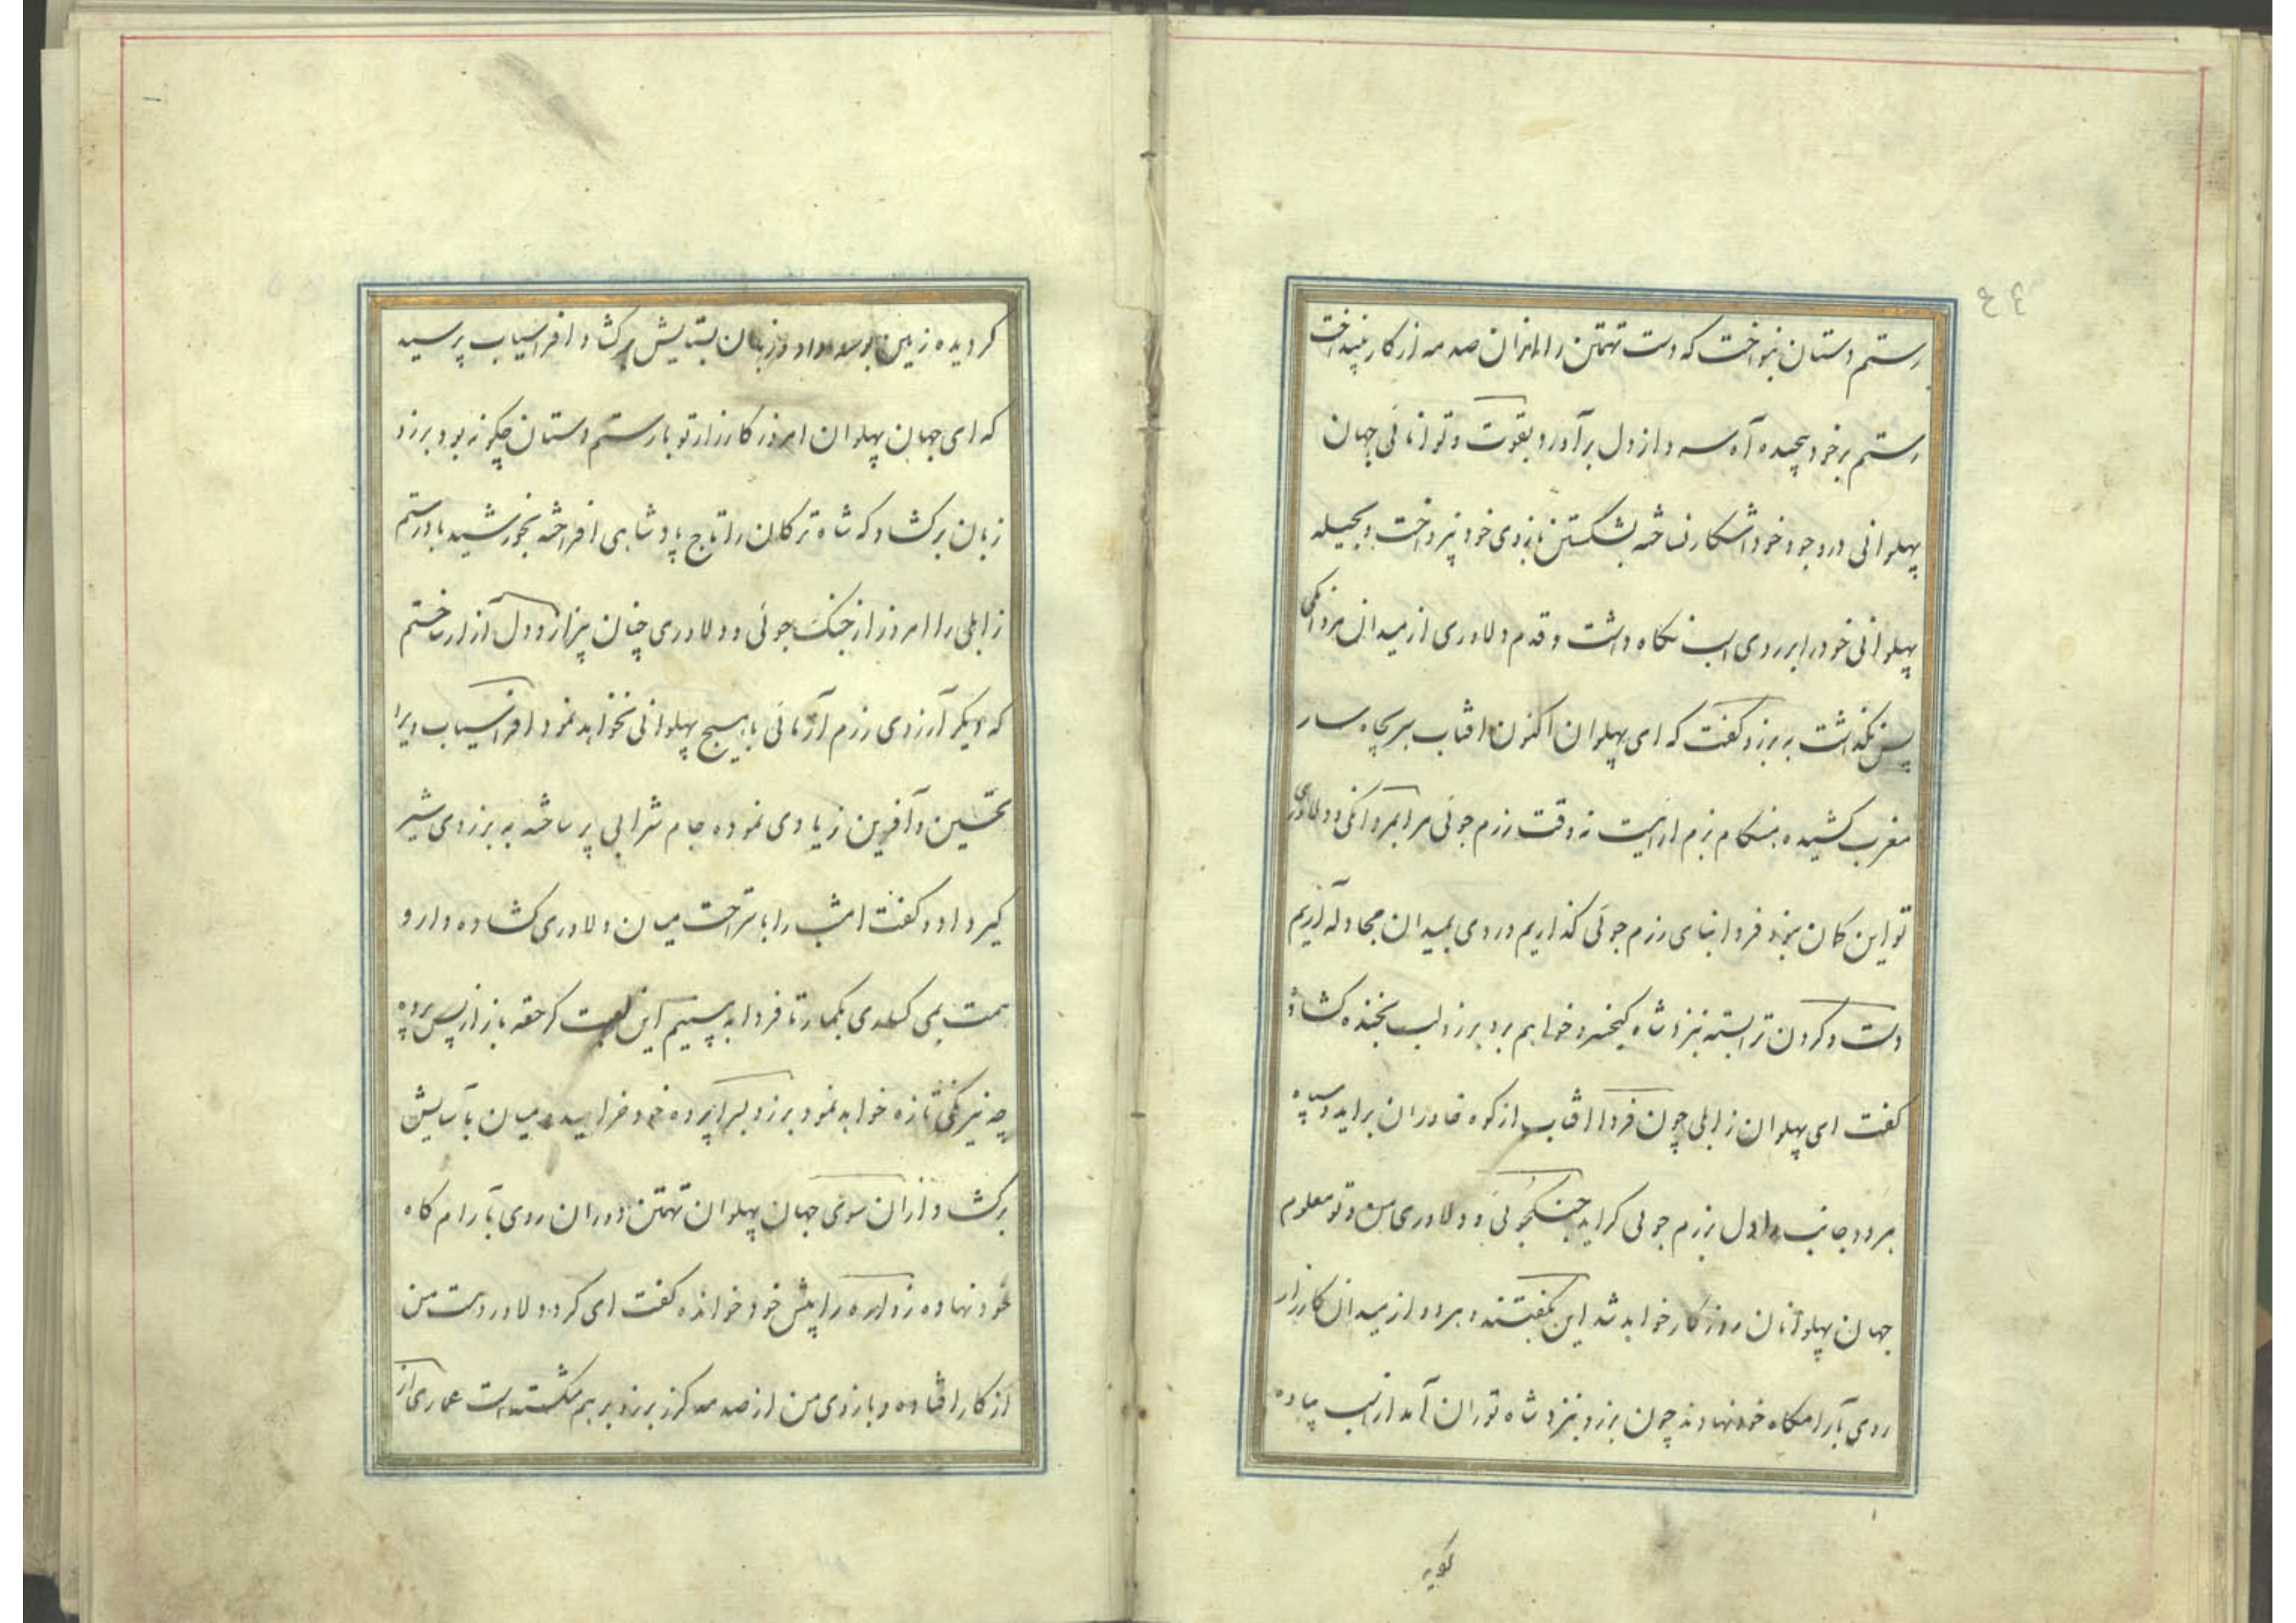 ٤٤
رستم دستان بنواخت که دست تهمتن را از ان صدمه از کار بینداخت
رستم بر خود پیچیده آه سرد از دل برآورد و بقوت و توانائی جهان
پهلوانی در وجود خود آشکار نساخته بشکستن بازوی خود نپرداخت و بحیله
پهلوانی خود را بر روی اسب نگاه داشت و قدم دلاوری از میدان مردانگی
پس نگذاشت به برزو گفت که ای پهلوان اکنون افتاب سر بچاه سار
مغرب کشیده هنگام بزم آرائیست نه وقت رزم جوئی مرا بمردانگی و دلاوری
تو این کمان نبود فردا بنای رزم جوئی گذاریم و روی بمیدان مجادله آریم
دست و کردن ترا بسته بنزد شاه کیخسرو خواهم برد برزو لب بخنده کشاد
گفت ای پهلوان زابلی چون فردا افتاب از کوه خاوران براید و سپه
هر دو جانب دل برزم جوئی کراید جنکجوئی و دلاوری من و تو معلوم
جهان پهلوانان روزکار خواهد شد این بگفتند و هر دو از میدان کارزار
روی بآرامگاه خود نهادند چون برزو بنزد شاه توران آمد از اسب پیاده
کردیده زمین بوسه داد و زبان بستایش برکشاد افراسیاب پرسید
که ای جهان پهلوان امروز کارزار تو با رستم دستان چگونه بود برزو
زبان برکشاد که شاه ترکان را تاج پادشاهی افراخته بخورشید باد رستم
زابلی را امروز از جنک جوئی و دلاوری چنان بیزار و دل آزار ساختم
که دیگر آرزوی رزم آزمائی با هیچ پهلوانی نخواهد نمود افراسیاب ویرا
تحسین و آفرین زیادی نموده جام شرابی پر ساخته به برزوی شیر
گیر داد و گفت امشب را باستراحت میان دلاوری کشاده دار و
همت بمی کساری بکمار تا فردا به بینیم این لعبت که حقه باز از پس پرده
چه نیرنگی تازه خواهد نمود برزو بسراپرده خود خرامیده میان بآسایش
برکشاد از ان سوی جهان پهلوان تهمتن دوران روی بآرام گاه
خود نهاده زواره را پیش خود خوانده گفت ای کرد دلاور دست من
از کار افتاده و بازوی من از صدمه کرز برزو بر هم شکسته است عماری از